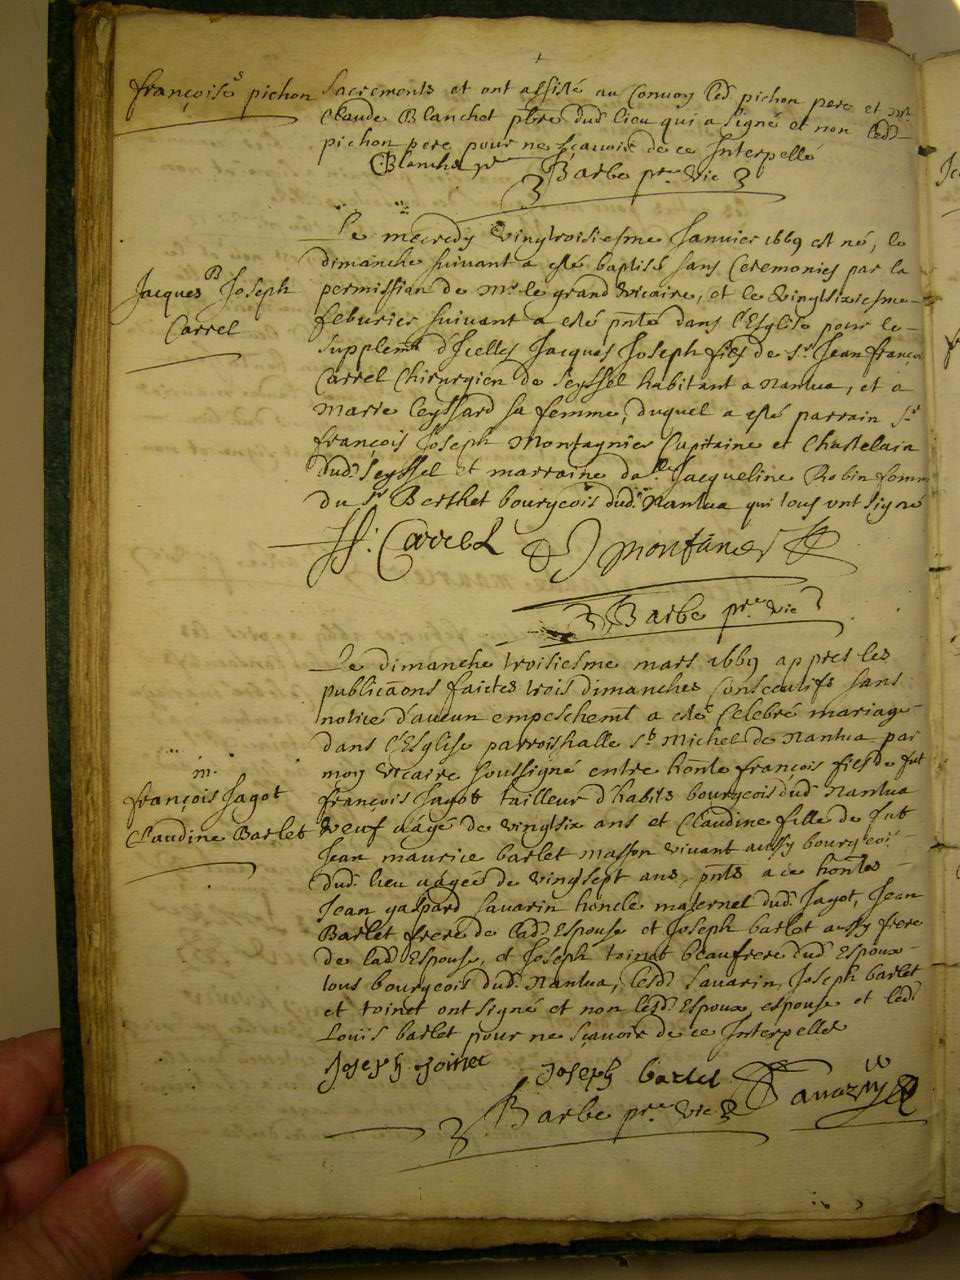 françoise pichon
sacrements et ont assisté au Convoy led. pichon pere et mre
Claude Blanchet pbre dud. lieu qui a signé et non led.
pichon pere pour ne sçavoir de ce Interpellé
CBlanchet pr Barbe pre. vic
B
Jacques Joseph
Carrel
Le mecredy vingtroisiesme Janvier 1669 est né, le
dimanche suivant a esté baptisé sans Ceremonies par la
permission de Mr. le grand vicaire, et le vingtsixiesme
feburier suivant a esté pnté dans l'Esglise pour le
supplemt. d'Icelles Jacques Joseph fils de sr. Jean françois
Carrel Chirurgien de Seyssel habitant a Nantua, et a
Marie leyssard sa femme, duquel a esté parrain sr.
françois Joseph Montagnier Capitaine et Chastelain
dud. Seyssel et marraine dalle. Jacqueline Robin femme
du sr. Berthet bourgeois dud. Nantua qui tous ont signé
Carrel montanier
Barbe pre. vic
m.
françois Jagot
Claudine Barlet
Le dimanche troisiesme mars 1669 appres les
publicaons faictes trois dimanches consecutifs sans
notice d'aucun empeschemt. a esté Celebré mariage
dans l'Esglise parroishalle st. Michel de Nantua par
moy vicaire soussigné entre honte. françois fils de fut
françois Jagot tailleur d'habits bourgeois dud. Nantua
veuf aagé de vingtsix ans et Claudine fille de fut
Jean maurice barlet masson vivant aussy bourgeois
dud. lieu aagée de vingtsept ans, pnts a ce hontes
Jean gaspard Savarin honcle maternel dud. Jagot, Jean
Barlet frere de lad. Espouse et Joseph barlet aussy frere
de lad. Espouse, et Joseph toinet beaufrere dud. Espoux
tous bourgeois dud. Nantua, lesd. Savarin, Joseph barlet
et toinet ont signé et non lesd. Espoux, espouse et led.
Louis barlet pour ne sçavoir de ce Interpellés
Joseph toinet Joseph barlet Savarin
Barbe pre. vic